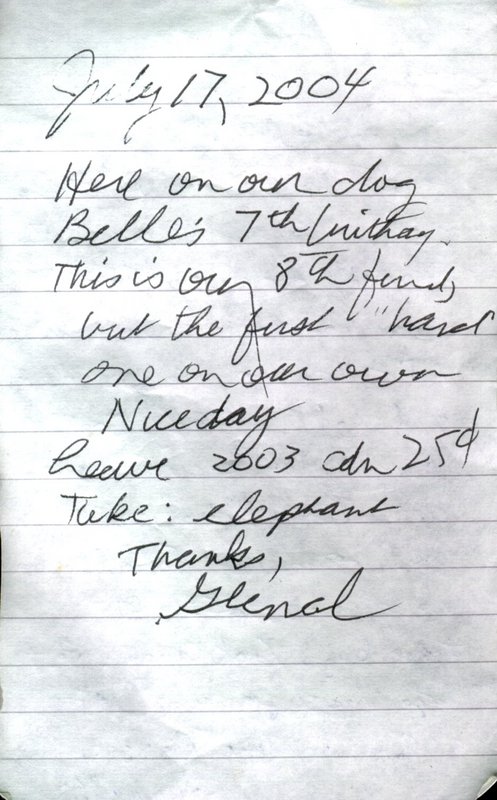 July 17, 2004
Here on our dog
Belle's 7th birthday.
This is our 8th find,
but the first "hard
one on our own
Nice day
Leave 2003 cdn 25¢
Take: elephant
Thanks,